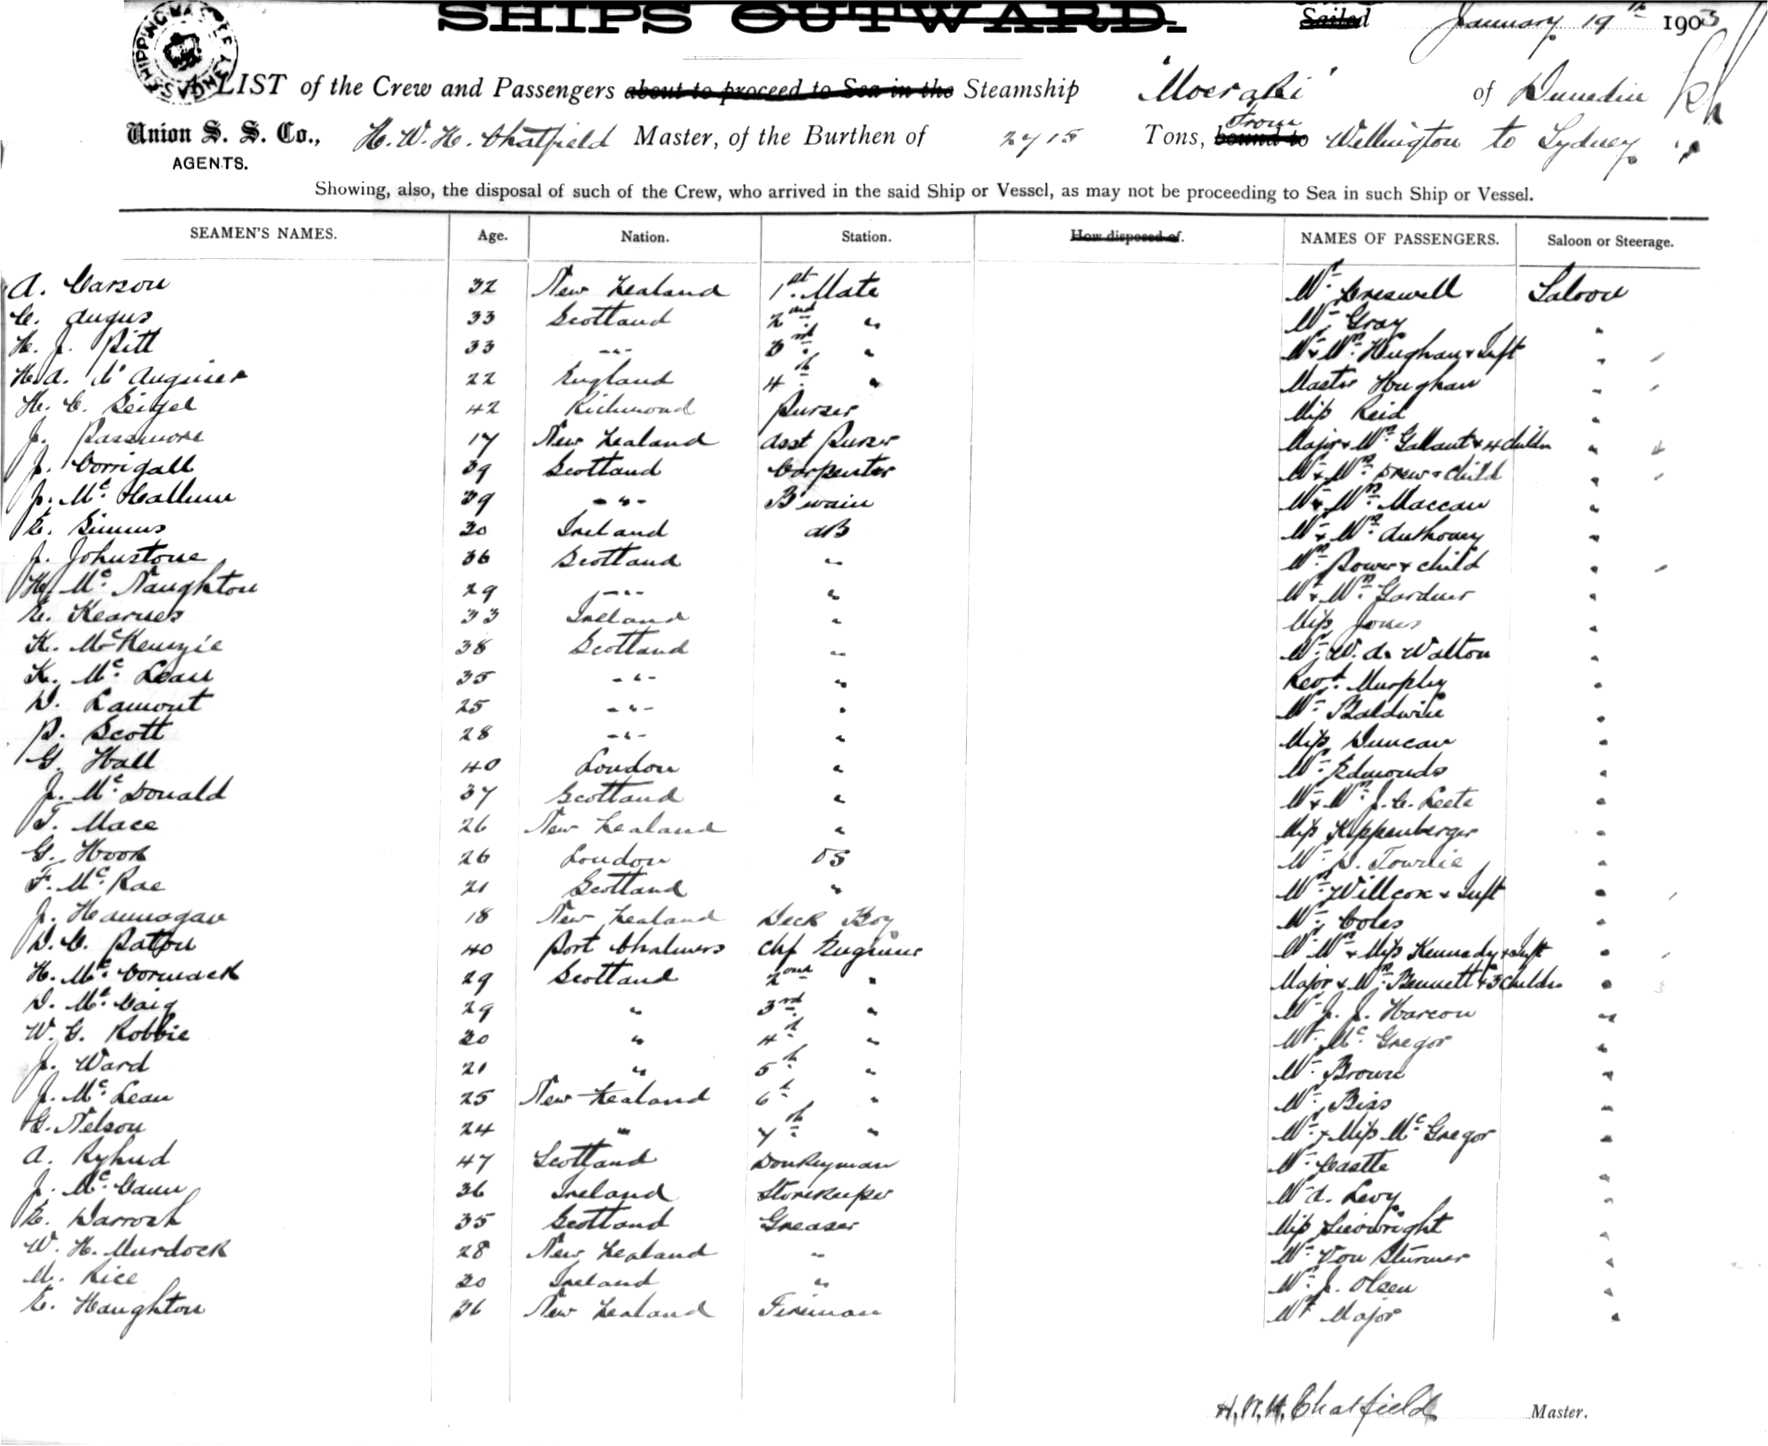 SHIPS OUTWARD.
Sailed January 19th 1903
LIST of the Crew and Passengers about to proceed to Sea in the Steamship "Moeraki" of Dunedin
Union S. S. Co., H. W. H. Chatfield Master, of the Burthen of 2715 Tons, bound to From Wellington to Sydney
AGENTS.
Showing, also, the disposal of such of the Crew, who arrived in the said Ship or Vessel, as may not be proceeding to Sea in such Ship or Vessel.
SEAMEN'S NAMES. Age. Nation. Station. How disposed of. NAMES OF PASSENGERS. Saloon or Steerage.
A. Carson 32 New Zealand 1st. Mate Mr. Creswell Saloon
C. Angus 33 Scotland 2nd " Mr. Gray "
H. J. Pitt 33 -"- 3rd " Mr & Mrs. Hughan & Inft "
H. A. 22 England 4th " Master Hughan "
H. C. Seigel 42 Richmond Purser Miss Reid "
J. Passmore 17 New Zealand Asst Purser Major & Mrs. Gallant & 4 childn "
J. Corrigall 39 Scotland Carpenter Mr & Mrs. Drew & Child "
J. Mc. Hallum 39 -"- B'swain Mr & Mrs. Maccan "
E. Simms 30 Ireland AB Mr & Mrs. Anthoney "
J. Johnstone 36 Scotland " Mrs. Bower & child "
H. Mc. Naughton 29 -"- " Mr & Mrs. Gardner "
E. Kearnes 33 Ireland " Miss Jones "
K. McKenzie 38 Scotland " Mr. W. A. Walton "
K. Mc. Lean 35 -"- " Revd. Murphy "
D. Lamont 25 -"- " Mr. Baldwin "
P. Scott 28 -"- " Miss Duncan "
G. Hall 40 London " Mr. Edmonds "
J. Mc. Donald 37 Scotland " Mr & Mrs. J. C. Leete "
T. Mace 26 New Zealand " Miss Kippenberger "
G. Hook 26 London OS Mr. "
F. Mc. Rae 21 Scotland " Mrs. Willcox & Inft "
J. Hannagan 18 New Zealand Deck Boy Mr. Coles "
D. C. Paton 40 Port Chalmers Chf Engineer Mr Mrs & Miss Kennedy & Inft "
H. Mc. Cormack 29 Scotland 2nd " Major & Mrs. Bennett & 3 childn "
D. Mc. Caig 29 " 3rd " Mr J. J. "
W. G. Robbie 30 " 4th " Mr. Mc. Gregor "
J. Ward 21 " 5th " Mr. Brown "
J. Mc. Lean 25 New Zealand 6th " Mr. Biss "
G. Nelson 24 " 7th " Mr. & Miss Mc. Gregor "
A. 47 Scotland Donkeyman Mr. Castle "
J. Mc. Cann 36 Ireland Storekeeper Mr A. Levy "
E. Darroch 35 Scotland Greaser Miss Sievwright "
W. H. Murdock 28 New Zealand " Mr. Von Sturmer "
M. Rice 30 Ireland " Mr. J. Olsen "
E. Haughton 36 New Zealand Fireman Mr. Major "
H. W. H. Chatfield Master.